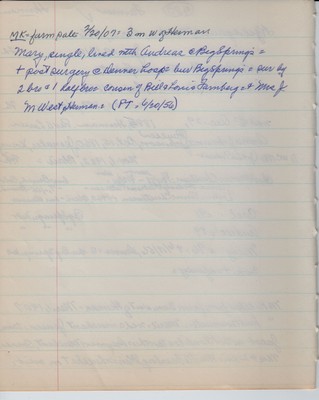 MK - farm pals 7/30/07 = 3 m w of Herman
Mary, single, lived with Andrew @ Big Springs =
+ post surgery @ Denver Hosp = bur Big Springs = sur by
2 bro + 1 half bro cousin of Bell & Louis Famburg & Mrs J
M West, Herman = (PT, 4/20/56)